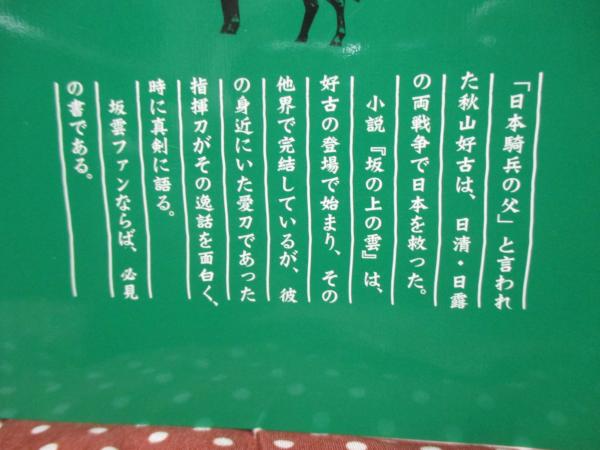 「日本騎兵の父」と言われ
た秋山好古は、日清・日露
の両戦争で日本を救った。
小説『坂の上の雲』は、
好古の登場で始まり、その
他界で完結しているが、彼
の身近にいた愛刀であった
指揮刀がその逸話を面白く、
時に真剣に語る。
坂雲ファンならば、必見
の書である。